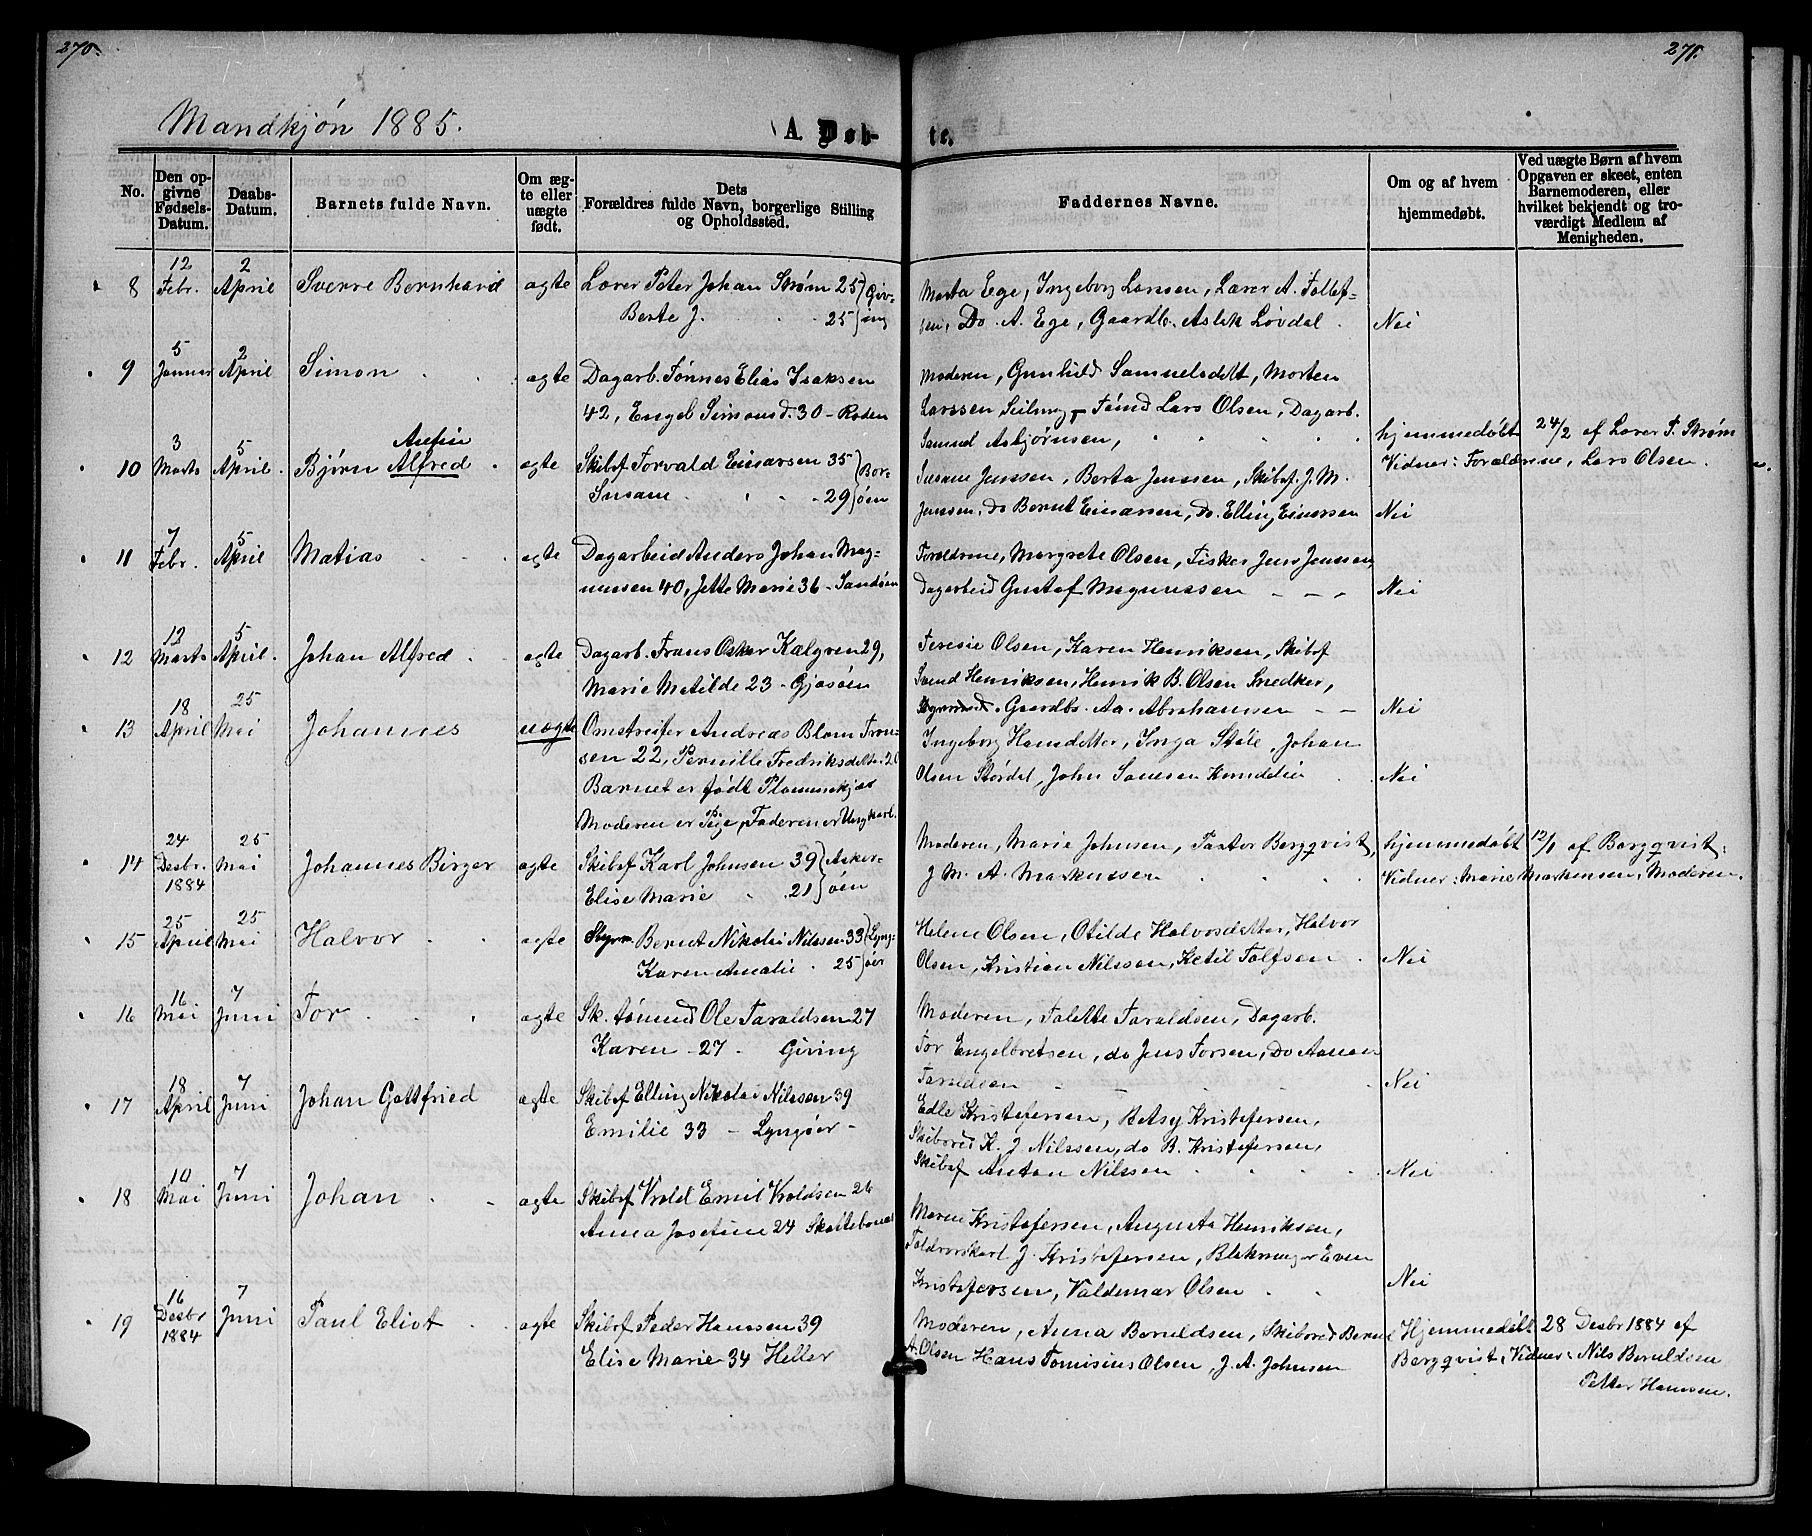 270.
271.
Mandkjøn 1885.
A. Døb-
te.
No.
Den op-
givne
Fødsels-
Datum.
Daabs-
Datum.
Barnets fulde Navn.
Om æg-
te eller
uægte
født.
Dets
Forældres fulde Navn, borgerlige Stilling
og Opholdssted.
Faddernes Navne.
Om og af hvem
hjemmedøbt.
Ved uægte Børn af hvem
Opgaven er skeet, enten
Barnemoderen, eller
hvilket bekjendt og tro-
værdigt Medlem af
Menigheden.
8 12 Febr. 2 April Sverre Bernhard ægte Lærer Peter Johan Strøm 25 Giv-
Berte J. 25 ing
Marta Ege, Ingeborg Larsen, Lærer A. Tallef-
sen, Do. A. Ege, Gaardb. Aslak Løvdal. Nei
9 5 Januar 2 April Simon ægte Dagarb. Tønnes Elias Isaksen
42, Engel Simonsd. 30 - Roden
Moderen, Gunhild Samuelsdtt, Morten
Larssen Seilmg, Tømd Lars Olsen, Dagarb.
Samuel Asbjørnsen,
hjemmedøbt 24/2 af Lærer P. Strøm
Vidner: Forældrene, Lars Olsen.
10 3 Marts 5 April. Bjørn Alfred ægte Skibsf Torvald Einarsen 35 Bor-
Susanne 29 øen
Susane Jenssen, Berta Jenssen, Skibsf. J. M.
Jenssen, do Bernt Einarsen, Do. Elling Einersen Nei
11 7 Febr. 5 April Matias ægte Dagarbeid Anders Johan Mag-
nussen 40, Jette Marie 36 - Sandøen
Forældrene, Margrete Olsen, Fisker Jens Jenssen
Dagarbeid Gustaf Magnussen Nei
12 12 Marts 5 April. Johan Alfred ægte Dagarb. Frans Oskar Kælgren 29,
Marie Matilde 23 - Gjøsøen
Teresie Olsen, Karen Henriksen, Skibsf
Svend Henriksen, Henrik B. Olsen Snedker,
Gaardbr. Aa. Abrahamsen Nei
13 18 April 25 Mai Johannes uægte Omstreifer Andreas Blom Fron-
sen 22, Pernille Fredriksdatter 20
Barnet er født Plommekjær
Moderen er Pige, Faderen er Ungkarl.
Ingeborg Hansdatter, Inga Støle, Johan
Olsen Stordal, John Nei
14 24 Desbr. 1884 25 Mai Johannes Birger ægte Skibsf Karl Johnsen 39 Asker-
Elise Marie 21 øen
Moderen, Marie Johnsen, Pastor Bergqvist,
J. M. A. Markussen
hjemmedøbt 12/1 af Bergqvist.
Vidner: Marie Markussen, Moderen.
15 25 April 25 Mai Halvor ægte Styrm Bernt Nikolai Nilssen 33 Lyng-
Karen Amalie 25 øer
Helene Olsen, Otilde Halvorsdatter, Halvor
Olsen, Kristian Nilssen, Ketil Tolfsen Nei
16 16 Mai 7 Juni Tor ægte Sk. tømmd Ole Taraldsen 27
Karen 27 - Giving
Moderen, Talette Taraldsen, Dagarb.
Tor Engelbretsen, do Jens Torsen, Do Aanon
Taraldsen Nei
17 18 April 7 Juni Johan Gottfried ægte Skibsf Elling Nikolai Nilssen 39
Emilie 33 - Lyngøer -
Edle Kristofersen, Betsy Kristofersen,
Skibsred K. J. Nilssen, do B. Kristofersen,
Skibsf Anton Nilssen Nei
18 10 Mai 7 Juni Johan ægte Skibsf Vrold Emil Vroldsen 26
Anna Josefine 24
Maren Kristofersen, Augusta Henriksen,
Toldrorskarl J. Kristofersen, Even
Kristofersen, Valdemar Olsen Nei
19 16 Desbr 1884 7 Juni Paul Eliot ægte Skibsf Peder Hanssen 39
Elise Marie 34 Heller
Moderen, Anna Beruldsen, Skibsred Bernt
A. Olsen Hans Tomisius Olsen, J. A. Johnsen
Hjemmedøbt 28 Desbr 1884 af
Bergqvist, Vidner: Nils Beruldsen
Petter Hanssen.